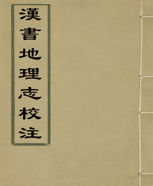 漢書地理志校注